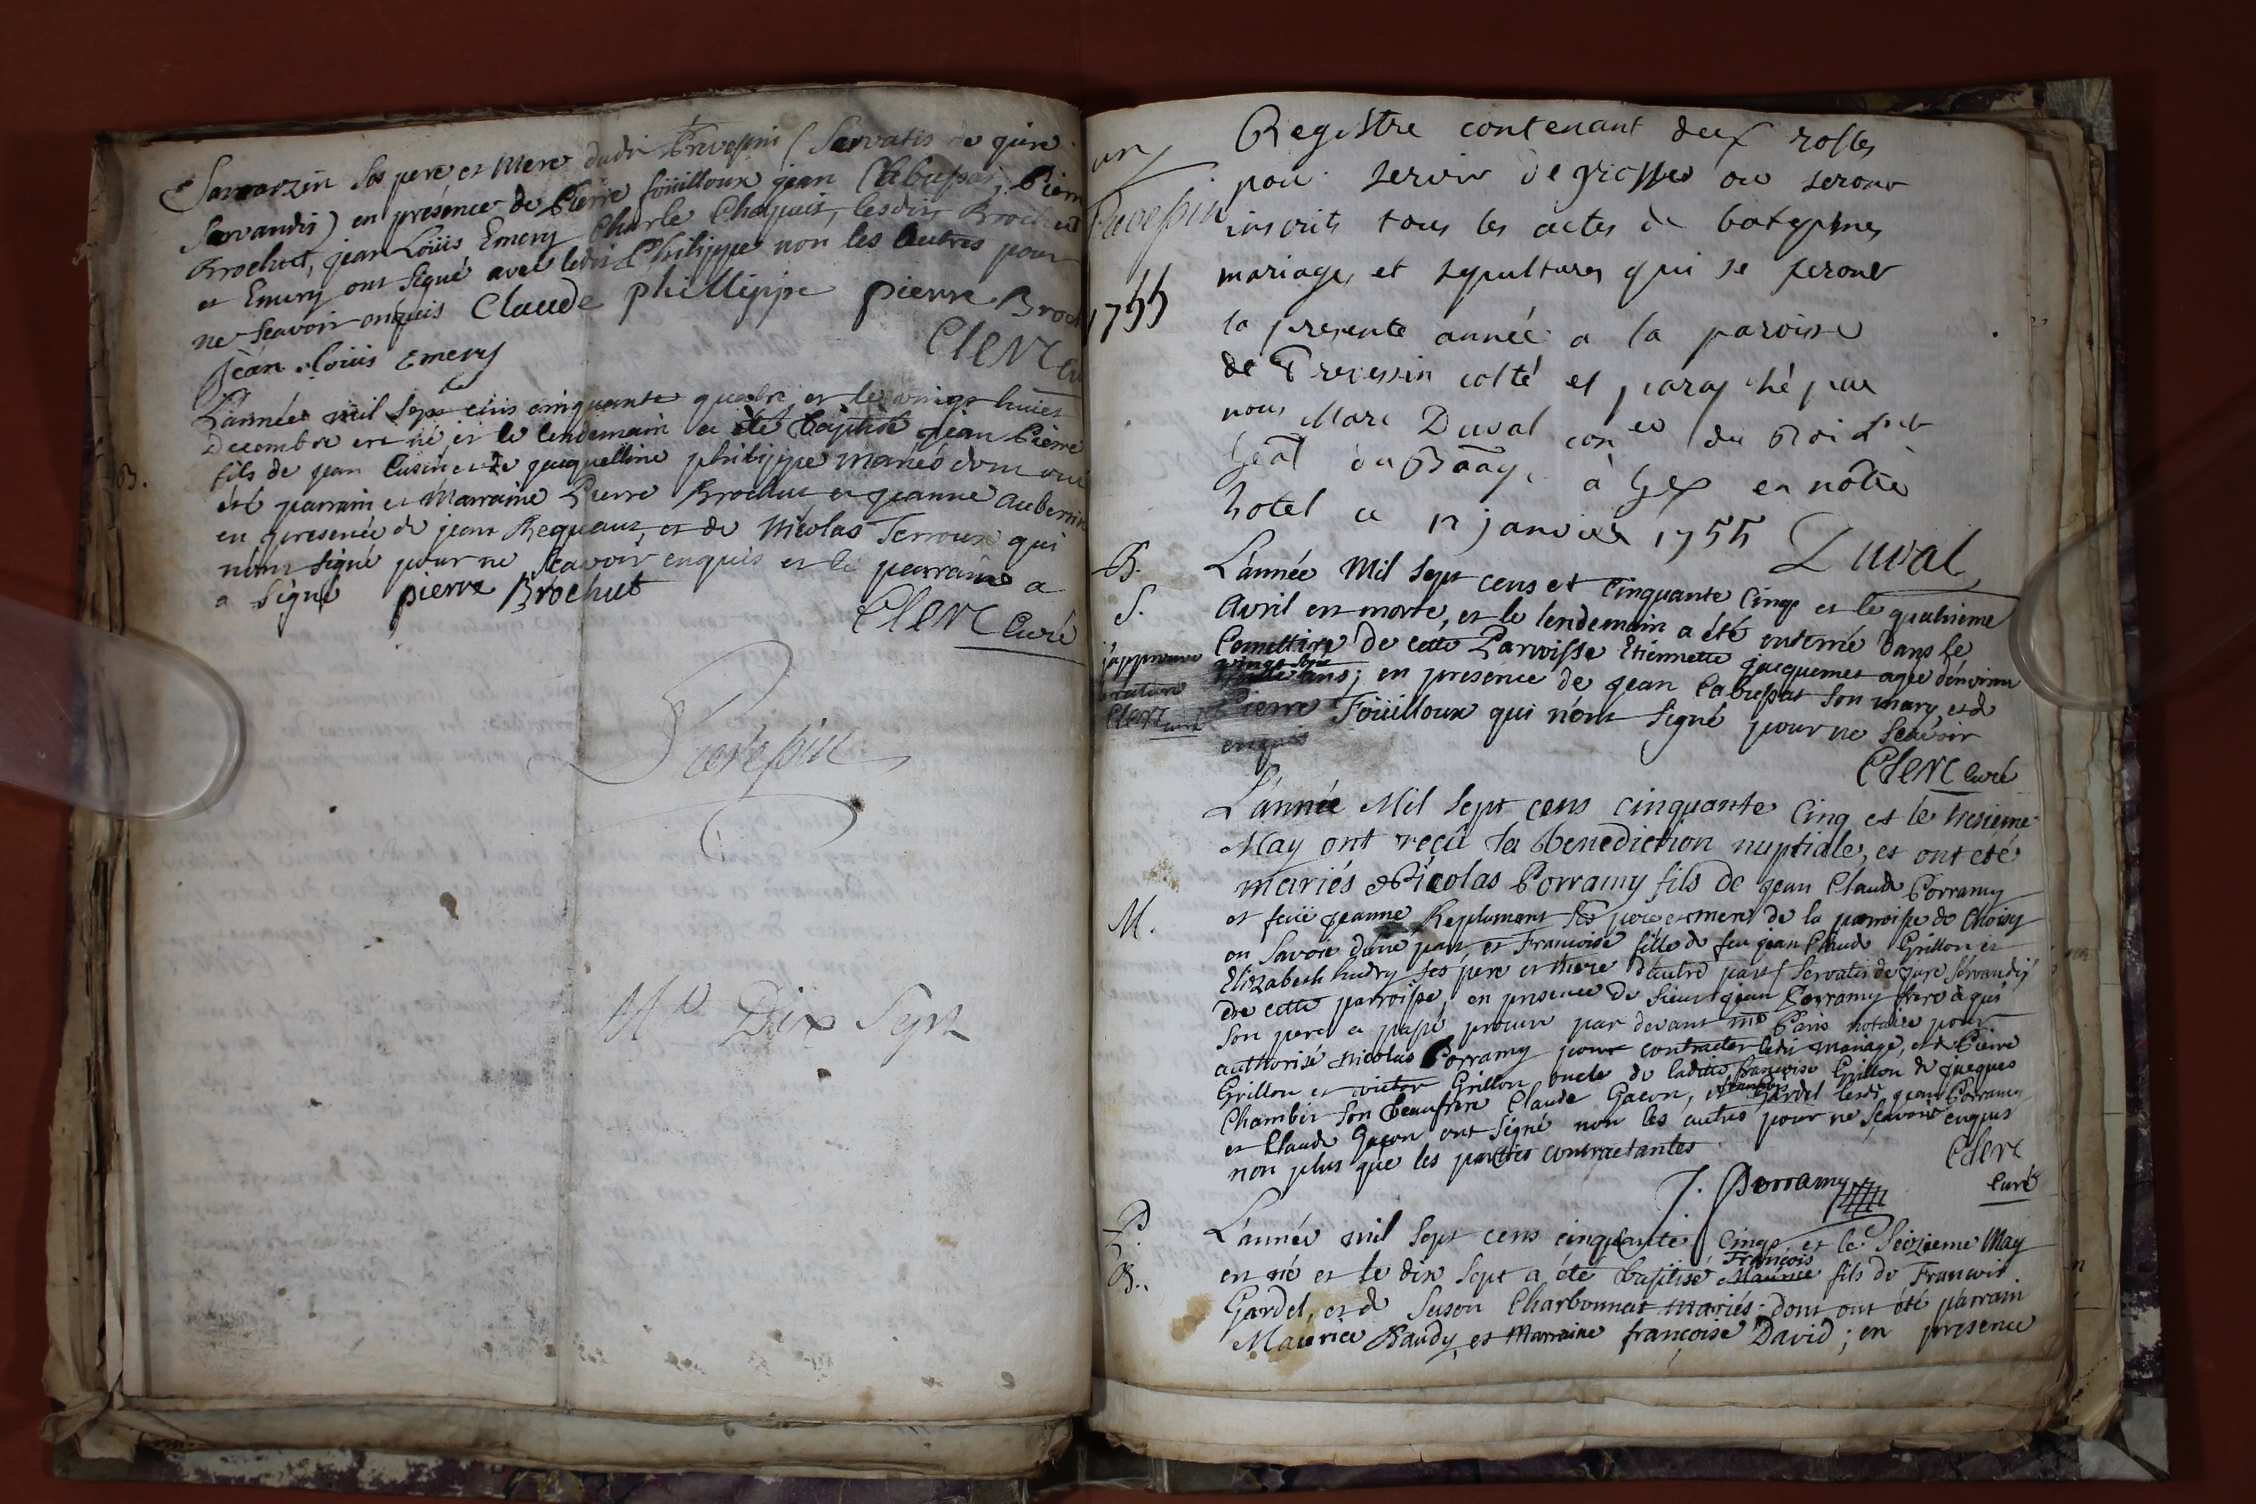 Sarrazin ses pere et Mere dudit Prevessin (Servatis de gire
Servandis) en présence de Pierre foüilloux jean Cabussat, Pierre
Brochut, jean Loüis Emery Charle Chapuis, lesdits Brochut
et Emery ont signé avec ledit Philippe non les autres pour
ne scavoir enquis Claude phillippe pierre Broch
jean Loüis Emery Clerc cu
B.
L'année mil sept cens cinquante quatre et le vingt huict
Decembre est né et le lendemain a été baptisé jean Pierre
fils de jean Cusin et de jacquelline philippe mariés dont ont
été parrain et Marraine Pierre Brochut et jeanne Aubersin
en presence de jean Requaut et de Nicolas Terroux qui
n'ont signé pour ne scavoir enquis et le parrain a
a signé pierre Brochut
Clerc Curé
Prevessin
Me Dix Sept
un
Prevessin
1755
Registre contenant deux rolles
pour servir de grosse ou seront
inscrits tous les actes de batesmes
mariages et sepultures qui se feront
la presente année a la paroisse
de Prevessin cotté et paraphé par
nous Marc Duval coner du Roi Lieut
Gēal au Baāge à Gex en nôtre
hotel ce 12 janvier 1755 Duval
B.
S.
L'année Mil sept cens et Cinquante Cinq et le quatrieme
Avril est morte, et le lendemain a été enterrée dans le
Cemettire de cette Parroisse Etiennette jacquemet agée denviron
j'approuve
rature
Clerc curé
vingt sept
ans; en presence de jean Cabussat son mary et de
Pierre Foüilloux qui n'ont signé pour ne scavoir
enquis
Clerc Curé
M.
L'année Mil Sept cens cinquante Cinq et le tresieme
May ont reçû la benediction nuptiale, et ont eté
mariés Nicolas Porramy fils de jean Claude Porramy
et feüe jeanne Replumant ses pere et mere de la parroisse de Choisy
en Savoie d'une part et Francoise fille de feu jean Claude Grillon et
Elizabeth hudry ses pere et Mere d'autre part (Servatis de jure Servandis)
de cette parroisse, en presence de Sieur jean Porramy frere à qui
Son pere a passé procure par devant me Paris notaire pour
authorisé Nicolas Porramy pour contracter ledit mariage, et de Pierre
Grillon et victor Grillon oncle de ladite francoise Grillon de jacques
Chambit Son beaufrere Claude Gacon, et francois Gardel lesdt jean Porramy
et Claude Gacon ont signé non les autres pour ne scavoir enquis
non plus que les parties contractantes
Clerc
Curé
J. Porramy
B.
B..
L'année mil sept cens cinquante Cinq et le Seizieme May
est né et le dix sept a été baptisé François Maurice fils de Francois
Gardel, et de Suson Charbonnat mariés; dont ont été parrain
Maurice Baudy et Marraine françoise David; en presence